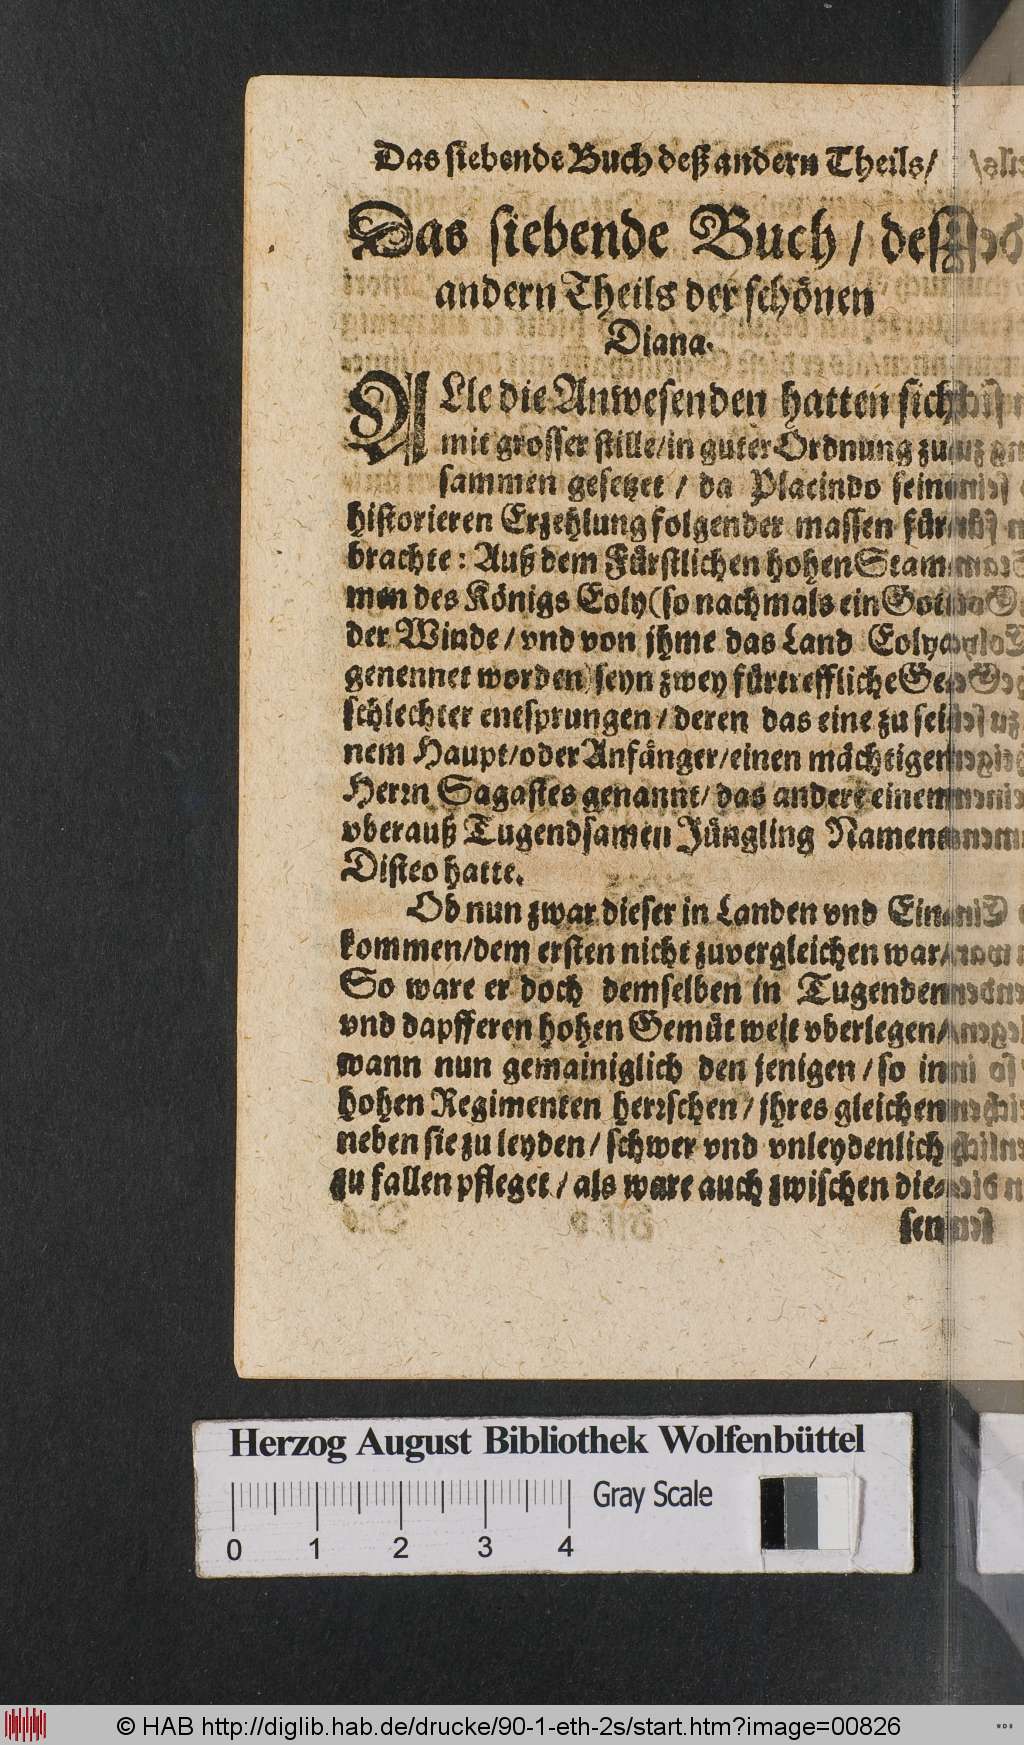 Das siebende Buch deß andern Theils/
Das siebende Buch / deß
andern Theils der schönen
Diana.
ALle die Anwesenden hatten sich
mit grosser stille/in guter Ordnung zu
sammen gesetzet / da Placindo seine
historieren Erzehlung folgender massen für
brachte: Auß dem Fürstlichen hohen Stam
men des Königs Eoly(so nachmals ein Gott
der Winde / vnd von jhme das Land Eolya
genennet worden) seyn zwey fürtreffliche Ge
schlechter entsprungen / deren das eine zu sei
nem Haupt/oder Anfänger/einen mächtigen
Herꝛn Sagastes genannt/ das andere einen
vberauß Tugendsamen Jüngling Namens
Disteo hatte.
Ob nun zwar dieser in Landen vnd Ein
kommen/dem ersten nicht zuvergleichen war/
So ware er doch demselben in Tugenden
vnd dapfferen hohen Gemüt weit vberlegen/
wann nun gemainiglich den jenigen / so in
hohen Regimenten herꝛschen / jhres gleichen
neben sie zu leyden / schwer vnd vnleydenlich
zu fallen pfleget / als ware auch zwischen die-
sen
Herzog August Bibliothek Wolfenbüttel
0 1 2 3 4 Gray Scale
© HAB http://diglib.hab.de/drucke/90-1-eth-2s/start.htm?image=00826